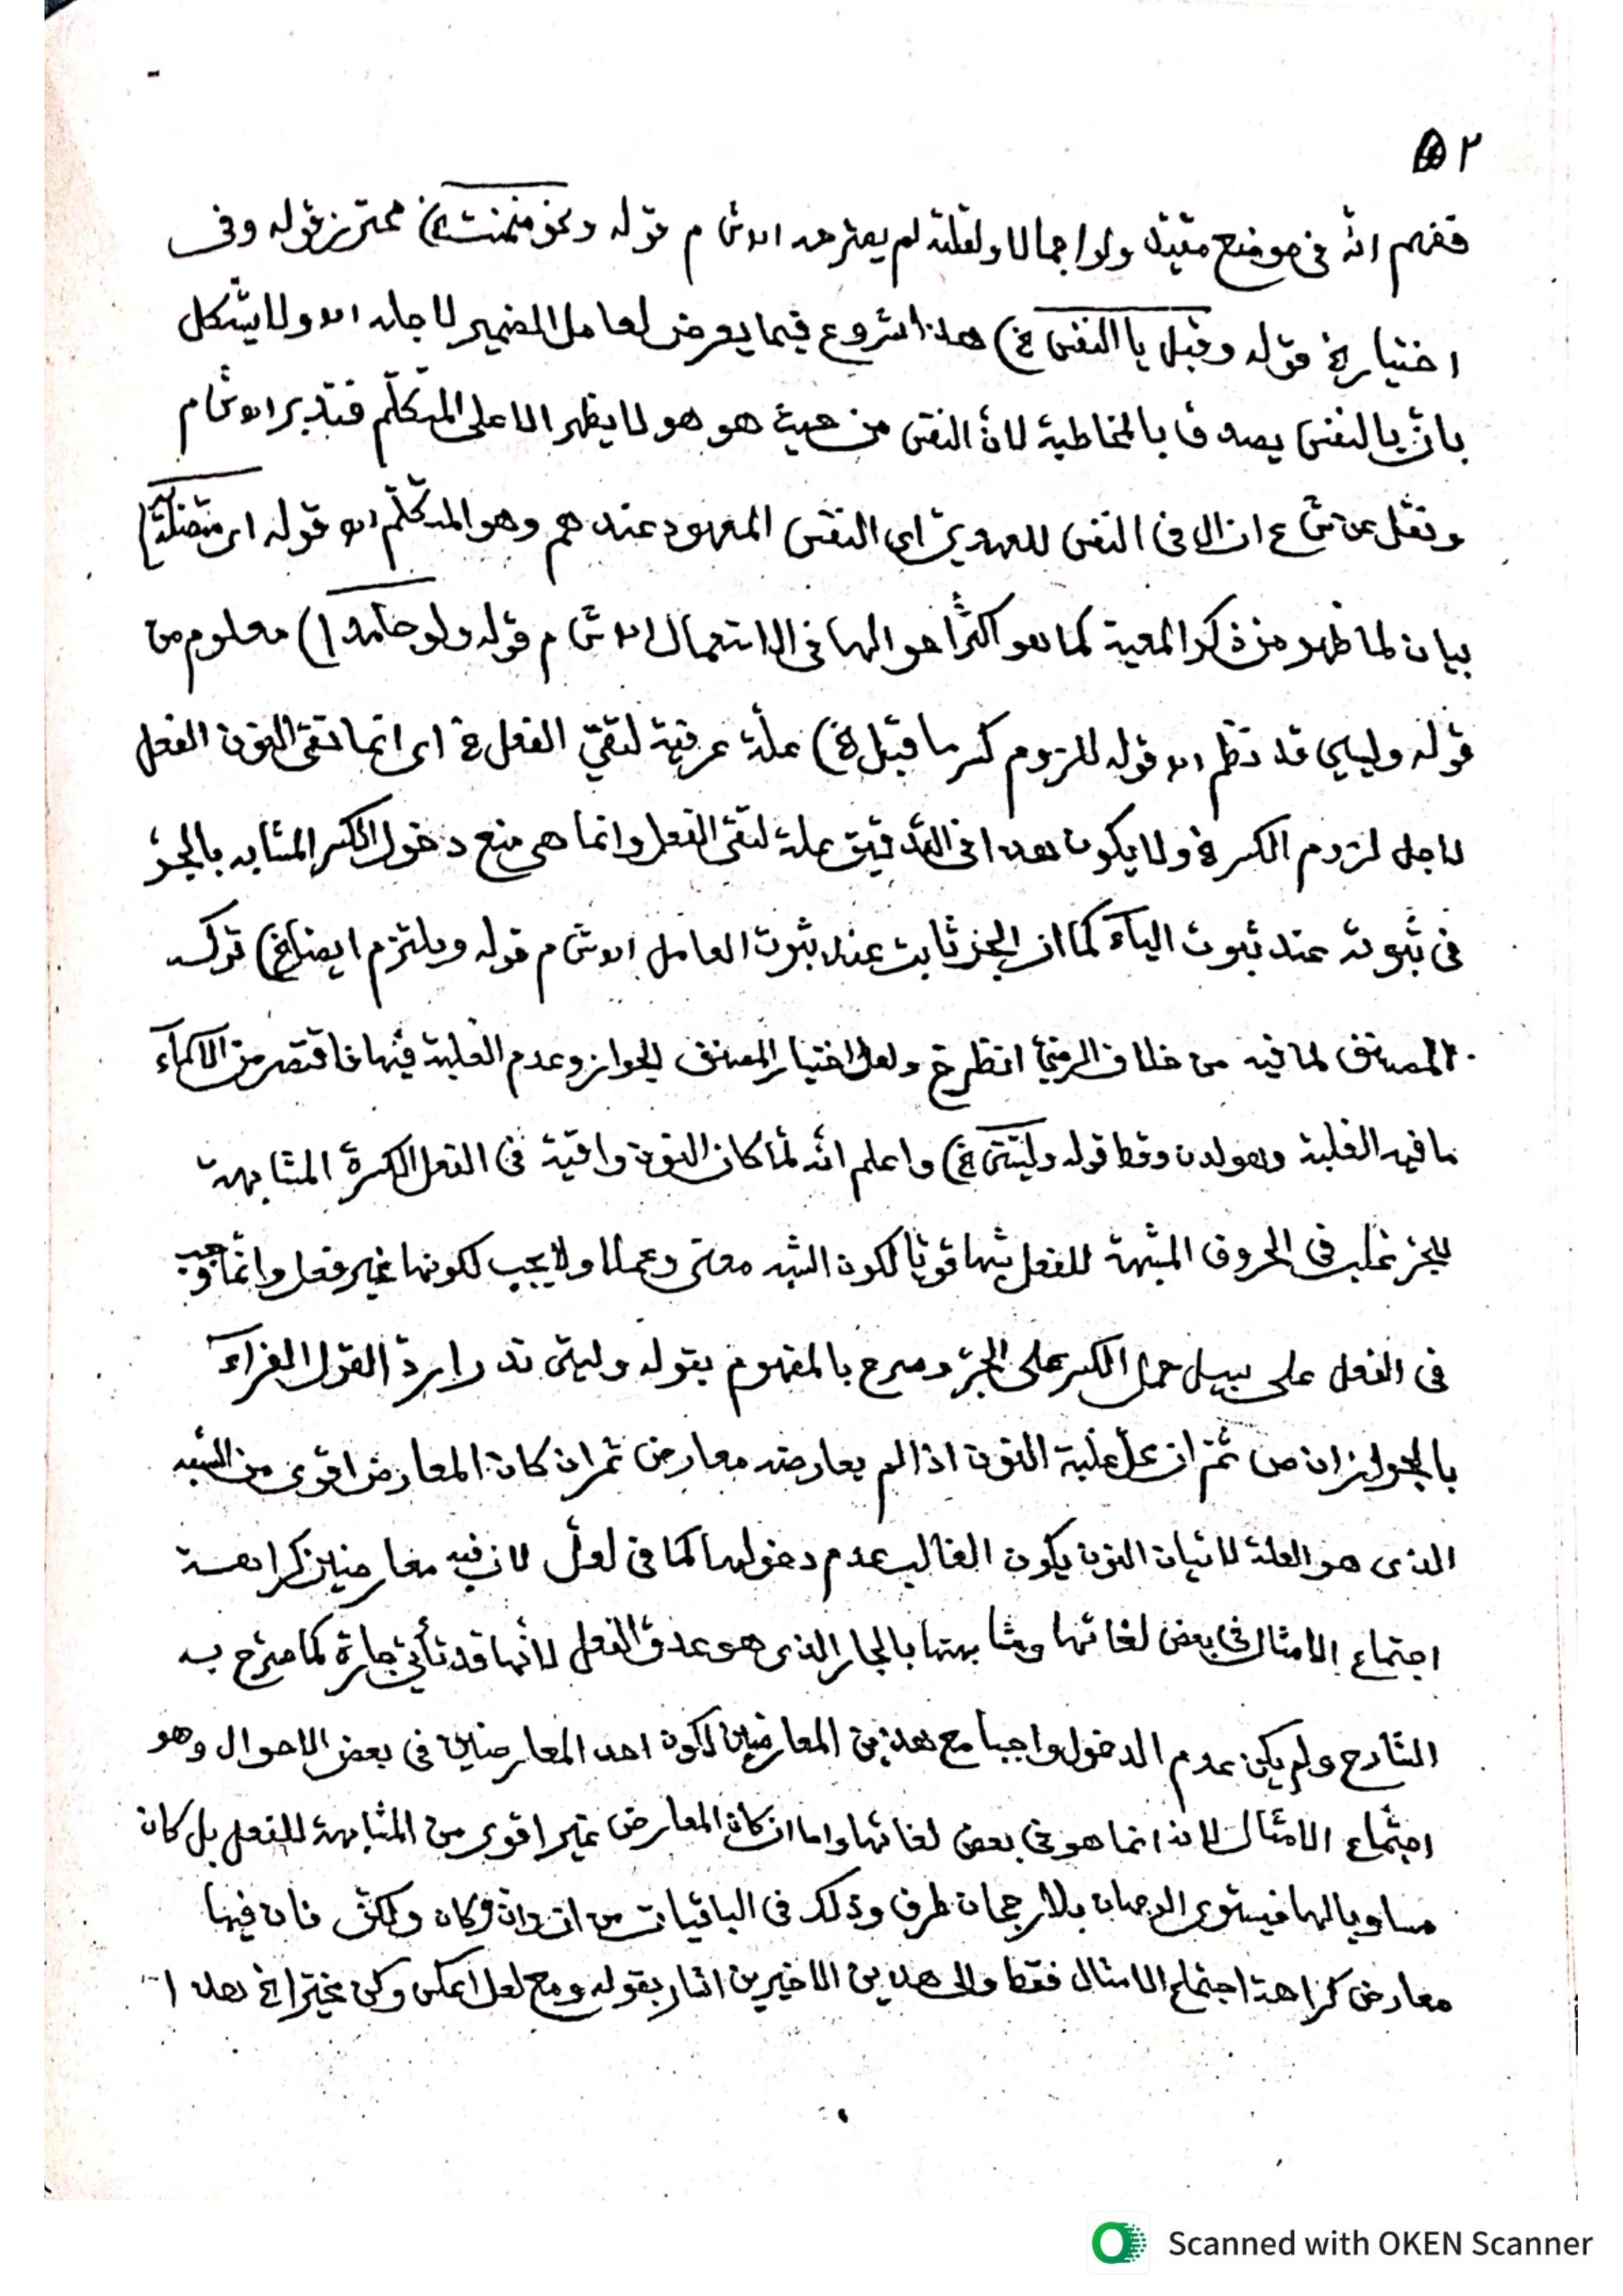 ٥٢
ففهم انّه فى موضع مقيّد ولو اجمالا ولقلته لم يعترضه اه ش م قوله ونحو ضمنت الخ) محترز قوله وفى
اختيار الخ قوله وقبل يا النفس الخ) هذا شروع فيما يعرض لعامل الضمير لاجله اه ولا يشكل
بانّ يا النفس يصدق بالمخاطبة لانّ النفس من حيث هو هو لا يظهر الا على المتكلّم فتدبر اه ش م
ونقل عن ش ع ان ال فى النفس للعهد اى النفس المعهود عندهم وهو المتكلّم اه قوله اى متصلة)
بيان لما ظهر من ذكر المعية كما هو اكثر احوالها فى الاستعمال اه ش م قوله ولو جامدا) معلوم من
قوله وليسي قد نظم اه قوله للزوم كسر ما قبل الخ) علّة عرفية لتقى الفعل الخ اى انما تقى النون الفعل
لاجل لزوم الكسر الخ ولا يكون هذا فى التدقيق علة لتقى الفعل وانما هى منع دخول الكسر المشابه بالجرّ
فى ثبوته عند ثبوت الياء كما ان الجر ثابت عند ثبوت العامل اه ش م قوله ويلتزم ايضا الخ) تركه
المصنف لما فيه من خلاف الرضىّ انظر ع ولعل اختيار المصنف الجواز وعدم الغلبة فيها فاقتصر من الاسماء
ما فيه الغلبة وهو لدن وقط قوله وليتنى الخ) واعلم انّه لمّا كان النون واقية فى الفعل الكسرة المشابهة
للجر غلب فى الحروف المشبهة للفعل شبها قويّا لكون الشبه معنى وعملا ولا يجب لكونها غير فعل وانّما وجب
فى الفعل على سبيل حمل الكسر على الجرّ وصرح بالمفهوم بقوله وليتى ندرا ردّ القول الفراء
بالجواز ان ص ثمّ ان محل غلبة النون اذا لم يعارضه معارض ثم ان كان المعارض اقوى من الشبه
الذى هو العلة لاتيان النون يكون الغالب عدم دخولها كما فى لعلّ لان فيه معارضين كراهة
اجتماع الامثال فى بعض لغاتها ومشابهتها بالجار الذى هو عدوّ الفعل لانّها قد تأتى جارة كما صرّح به
الشارح ولم يكن عدم الدخول واجبا مع هذين المعارضين لكون احد المعارضين فى بعض الاحوال وهو
اجتماع الامثال لانه انما هو فى بعض لغاتها واما ان كان المعارض غير اقوى من المشابهة للفعل بل كان
مساويا لها فيستوى الوجهان بلا رجحان طرف وذلك فى الباقيات من انّ وانّ وكانّ ولكنّ فان فيها
معارض كراهة اجتماع الامثال فقط والى هذين الاخيرين اشار بقوله ومع لعل اعكس وكن مخيّرا الخ هذا
Scanned with OKEN Scanner